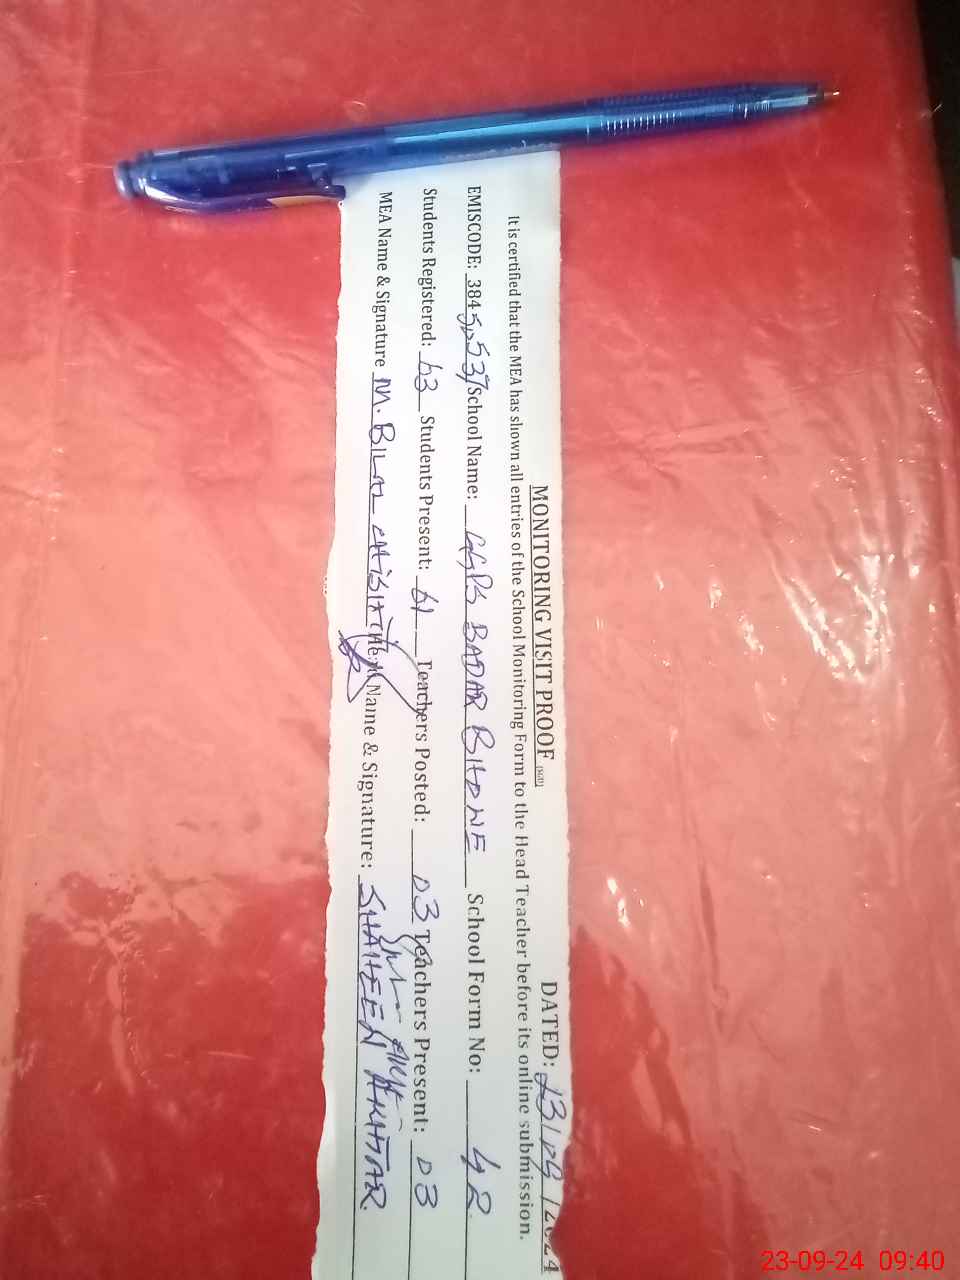 MONITORING VISIT PROOF (SGD) DATED: 23/09/2024
It is certified that the MEA has shown all entries of the School Monitoring Form to the Head Teacher before its online submission.
EMISCODE: 384 School Name: GGPS BADAR BHONE School Form No: 42
Students Registered: 63 Students Present: 61 Teachers Posted: 03 Teachers Present: 03
MEA Name & Signature M. BILAL Name & Signature: SHAHEEN AKHTAR
23-09-24 09:40